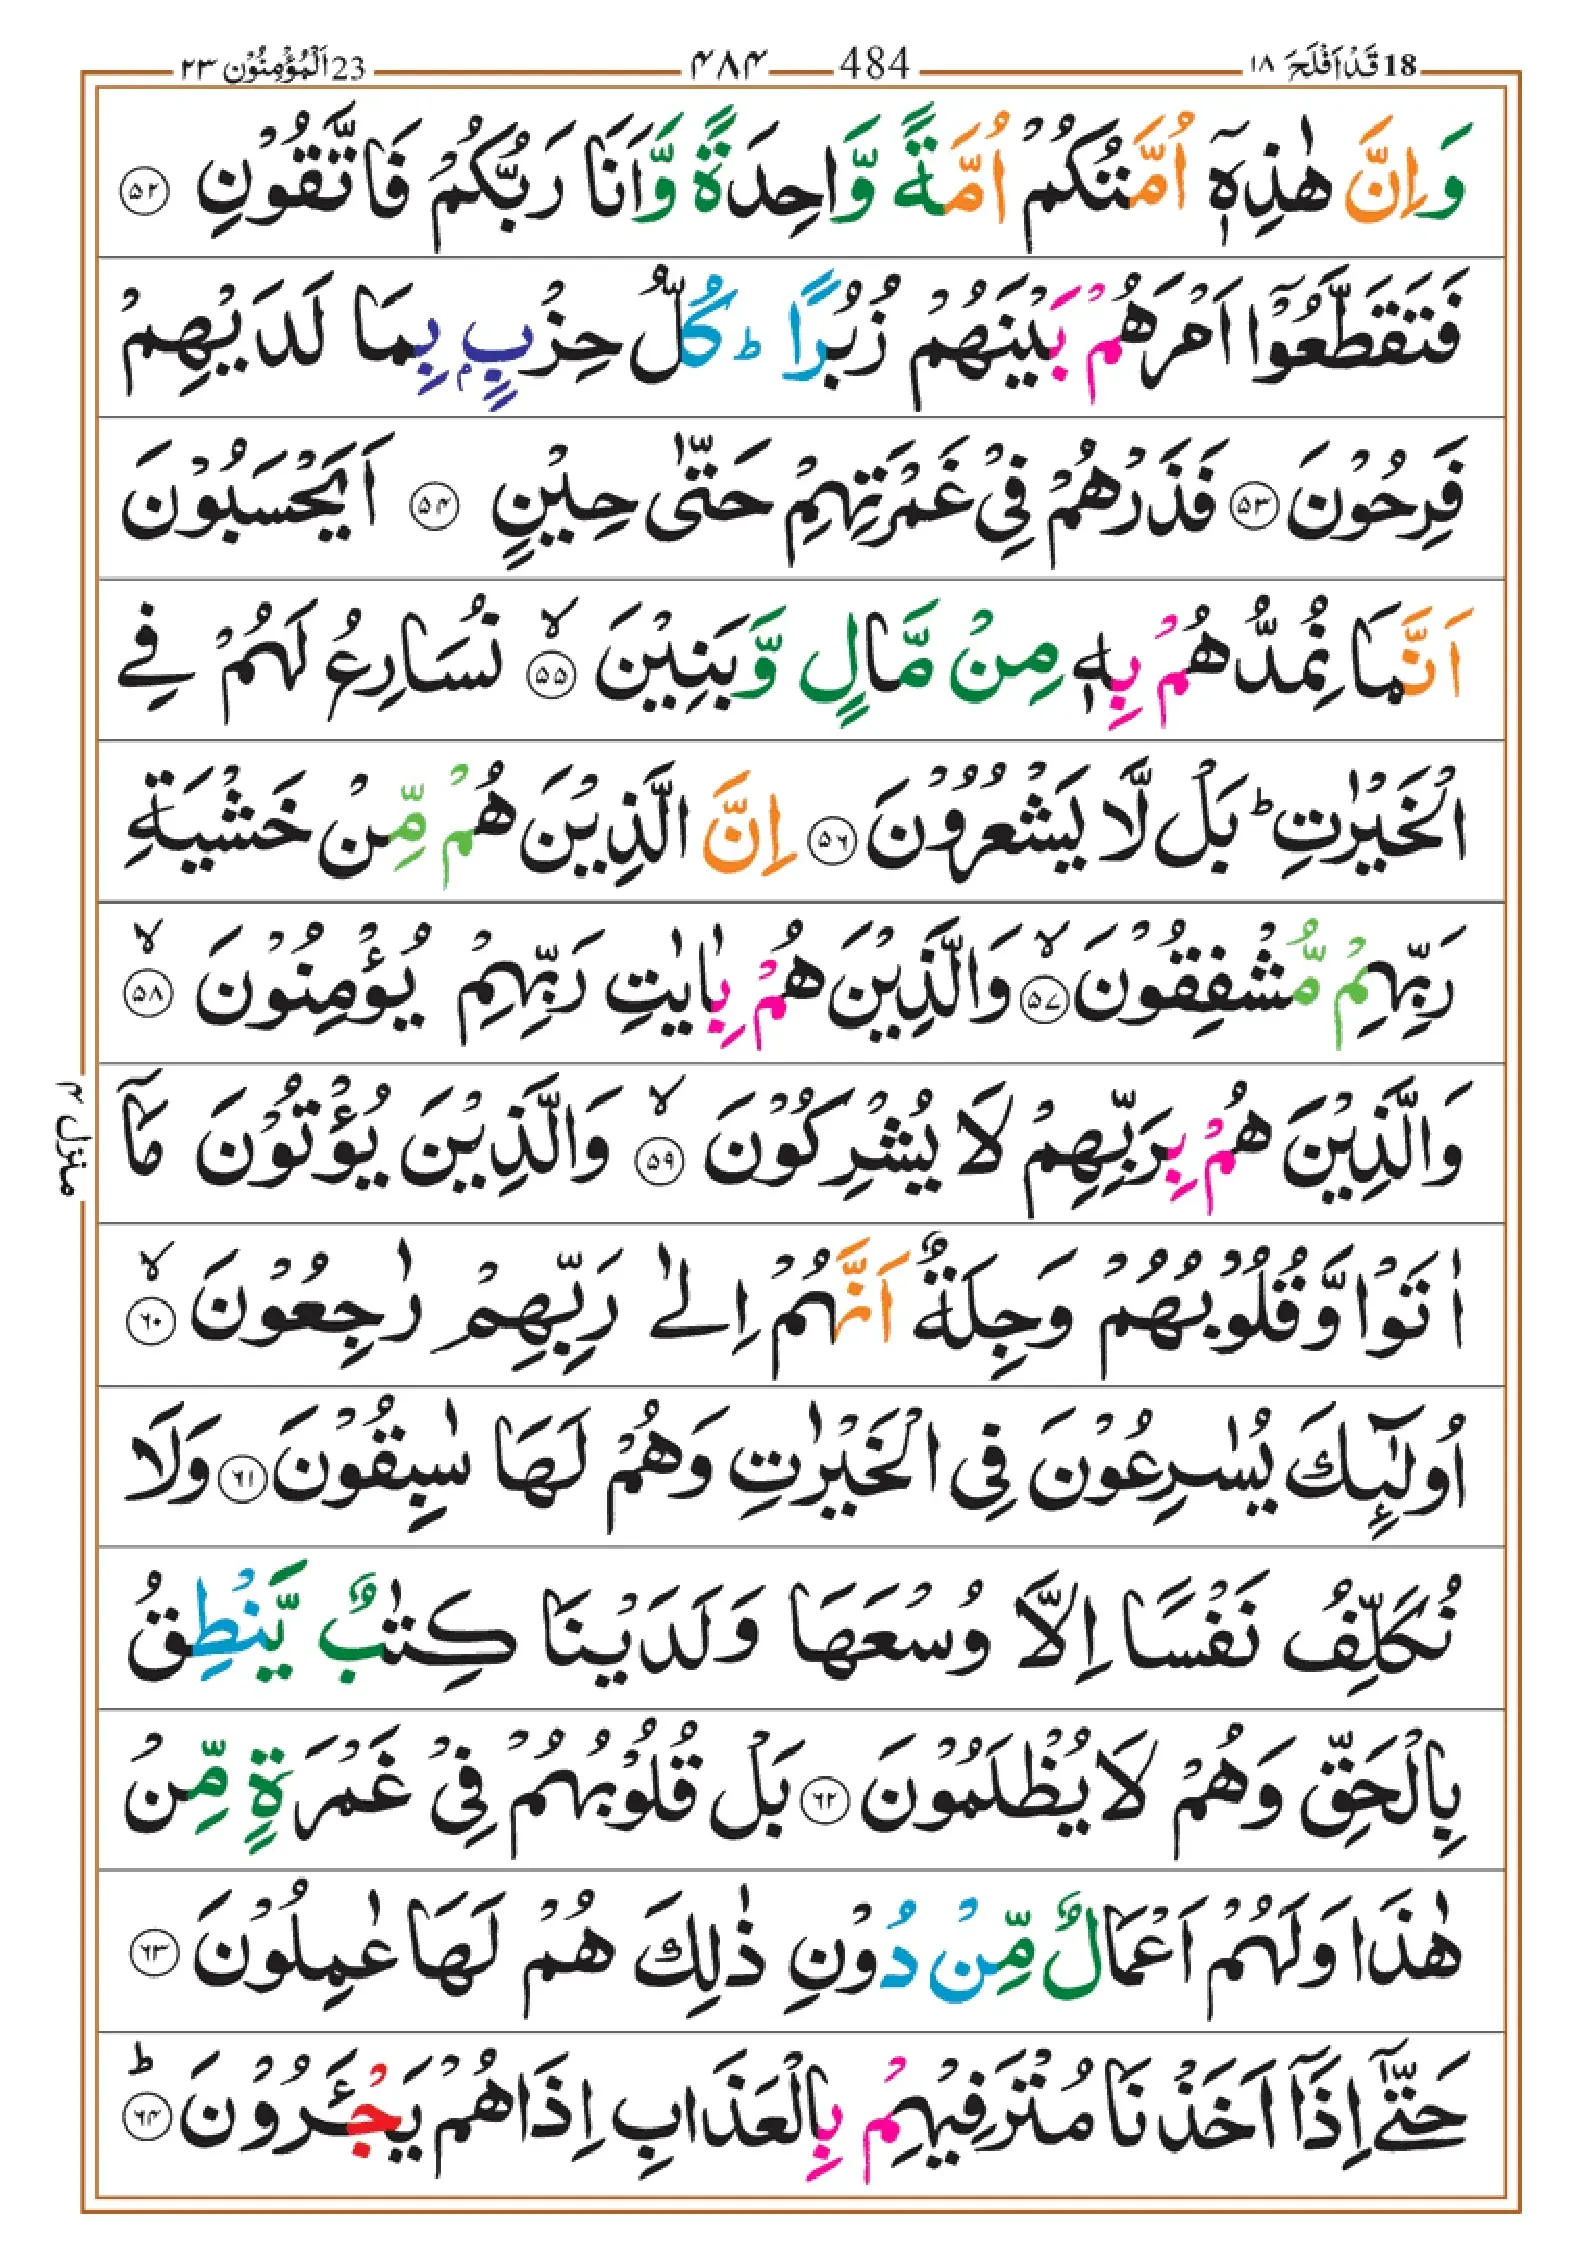 18 قَدْ اَفْلَحَ ۱۸ 484 ۴۸۴ 23 اَلْمُؤْمِنُوْن ۲۳
وَاِنَّ هٰذِهٖۤ اُمَّتُكُمْ اُمَّةً وَّاحِدَةً وَّاَنَا رَبُّكُمْ فَاتَّقُوْنِ ۵۲
فَتَقَطَّعُوْۤا اَمْرَهُمْ بَيْنَهُمْ زُبُرًا ؕ كُلُّ حِزْبٍۭ بِمَا لَدَيْهِمْ
فَرِحُوْنَ ۵۳ فَذَرْهُمْ فِىْ غَمْرَتِهِمْ حَتّٰى حِيْنٍ ۵۴ اَيَحْسَبُوْنَ
اَنَّمَا نُمِدُّهُمْ بِهٖ مِنْ مَّالٍ وَّبَنِيْنَ ۙ ۵۵ نُسَارِعُ لَهُمْ فِى
الْخَيْرٰتِ ؕ بَلْ لَّا يَشْعُرُوْنَ ۵۶ اِنَّ الَّذِيْنَ هُمْ مِّنْ خَشْيَةِ
رَبِّهِمْ مُّشْفِقُوْنَ ۙ ۵۷ وَالَّذِيْنَ هُمْ بِاٰيٰتِ رَبِّهِمْ يُؤْمِنُوْنَ ۙ ۵۸
وَالَّذِيْنَ هُمْ بِرَبِّهِمْ لَا يُشْرِكُوْنَ ۙ ۵۹ وَالَّذِيْنَ يُؤْتُوْنَ مَاۤ
اٰتَوْا وَّقُلُوْبُهُمْ وَجِلَةٌ اَنَّهُمْ اِلٰى رَبِّهِمْ رٰجِعُوْنَ ۙ ۶۰
اُولٰٓئِكَ يُسٰرِعُوْنَ فِى الْخَيْرٰتِ وَهُمْ لَهَا سٰبِقُوْنَ ۶۱ وَلَا
نُكَلِّفُ نَفْسًا اِلَّا وُسْعَهَا وَلَدَيْنَا كِتٰبٌ يَّنْطِقُ
بِالْحَقِّ وَهُمْ لَا يُظْلَمُوْنَ ۶۲ بَلْ قُلُوْبُهُمْ فِىْ غَمْرَةٍ مِّنْ
هٰذَا وَلَهُمْ اَعْمَالٌ مِّنْ دُوْنِ ذٰلِكَ هُمْ لَهَا عٰمِلُوْنَ ۶۳
حَتّٰۤى اِذَاۤ اَخَذْنَا مُتْرَفِيْهِمْ بِالْعَذَابِ اِذَا هُمْ يَجْـَٔرُوْنَ ؕ ۶۴
منزل ۴